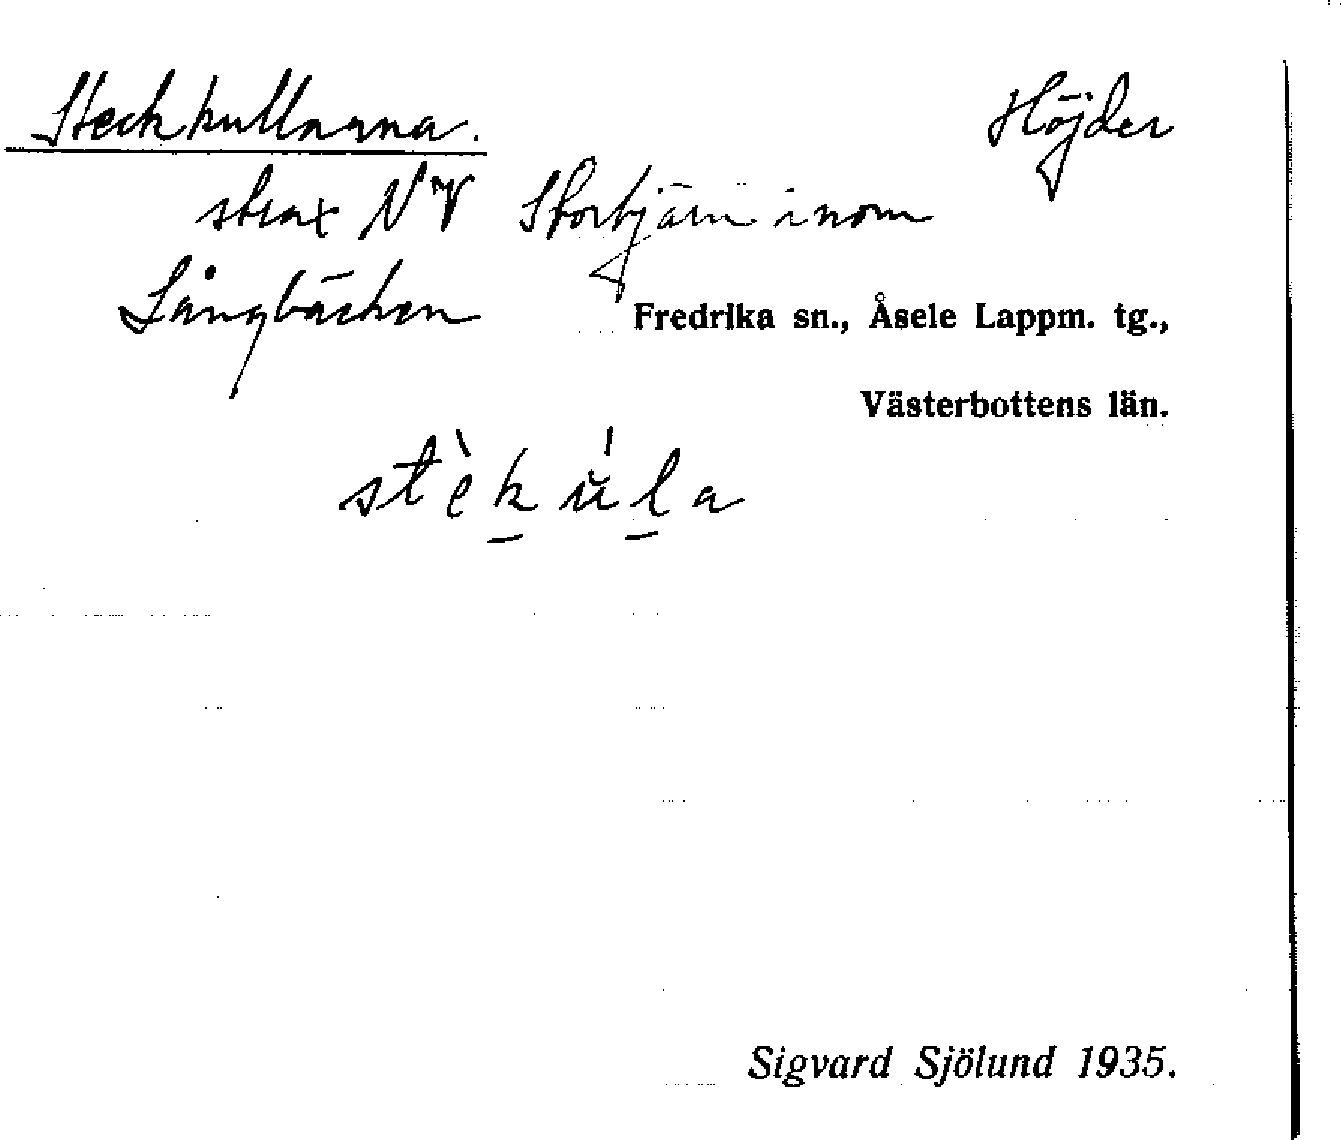 Steckkullarna. Höjder
strax NV Stortjärn inom
Långbäcken
Fredrika sn., Åsele Lappm. tg.,
Västerbottens län.
stèk̲ŭ̍l̲a
Sigvard Sjölund 1935.